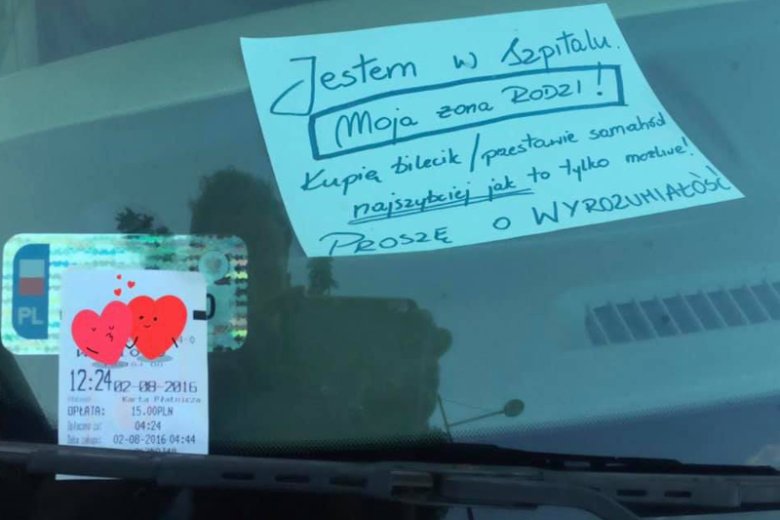 Jestem w szpitalu.
Moja żona RODZI!
Kupię bilecik/przestawię samahód
najszybciej jak to tylko możliwe!
PROSZĘ O WYROZUMIAŁOŚĆ
PL
12:24 02-08-2016
Karta Płatnicza
OPŁATA: 15.00PLN
04:24
02-08-2016 04:44